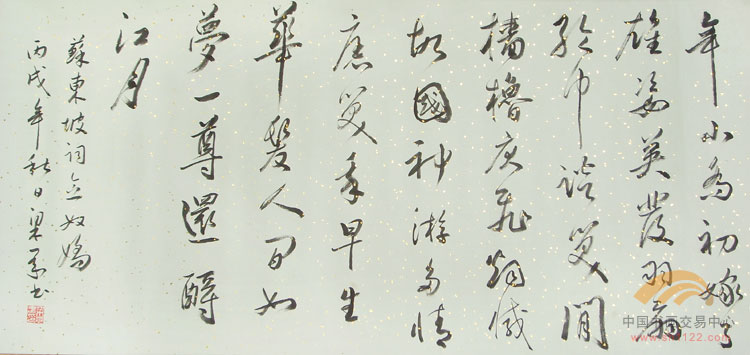 年小喬初嫁了
雄姿英發羽扇
綸巾談笑間
檣櫓灰飛烟滅
故國神游多情
應笑我早生
華髮人間如
夢一尊還酹
江月
蘇東坡詞念奴嬌
丙戌年秋日梁書
中国书画交易中心